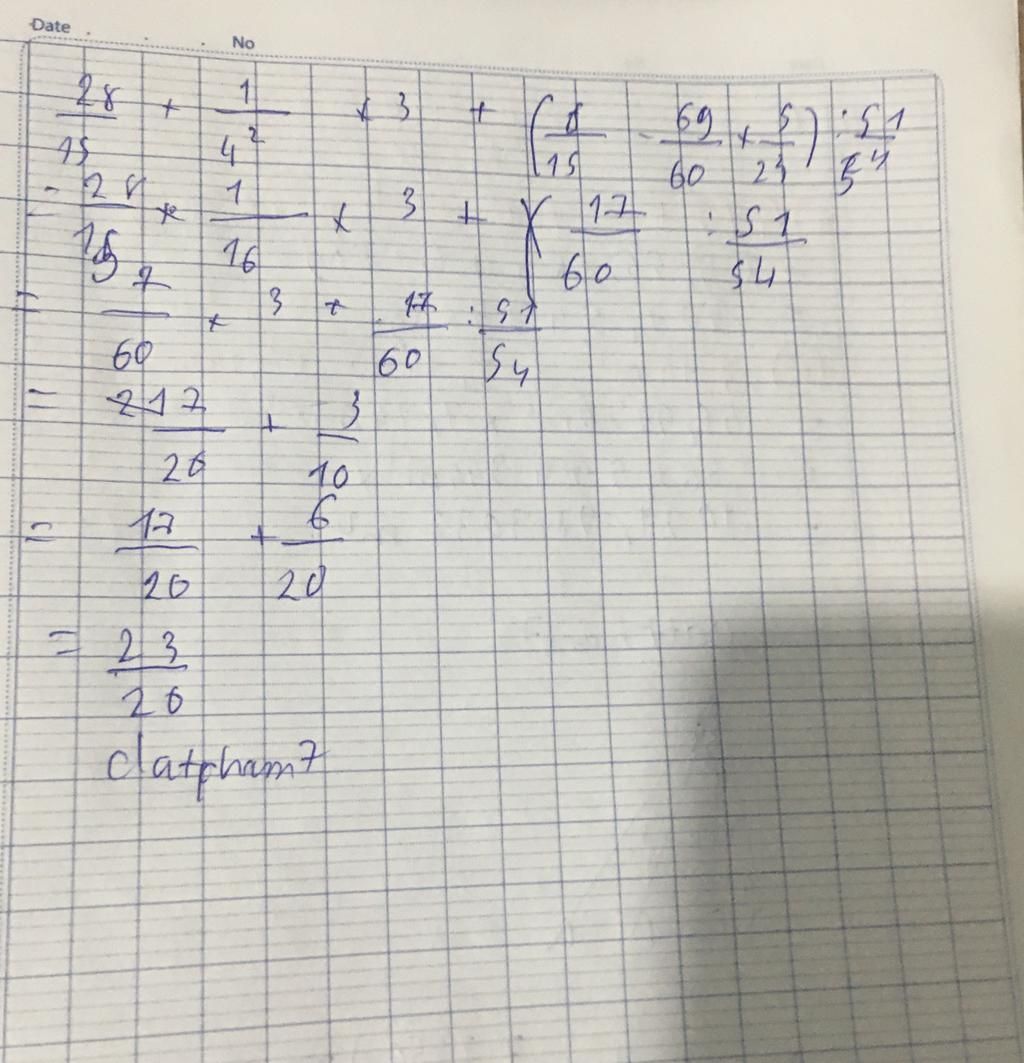 Date . . . No
28/15 + 1/4² × 3 + (8/15 - 69/60 × 5/23) : 51/54
= 28/15 × 1/16 × 3 + 17/60 : 51/54
= 7/60 × 3 + 17/60 : 51/54
= 17/20 + 3/10
= 17/20 + 6/20
= 23/20
datpham7